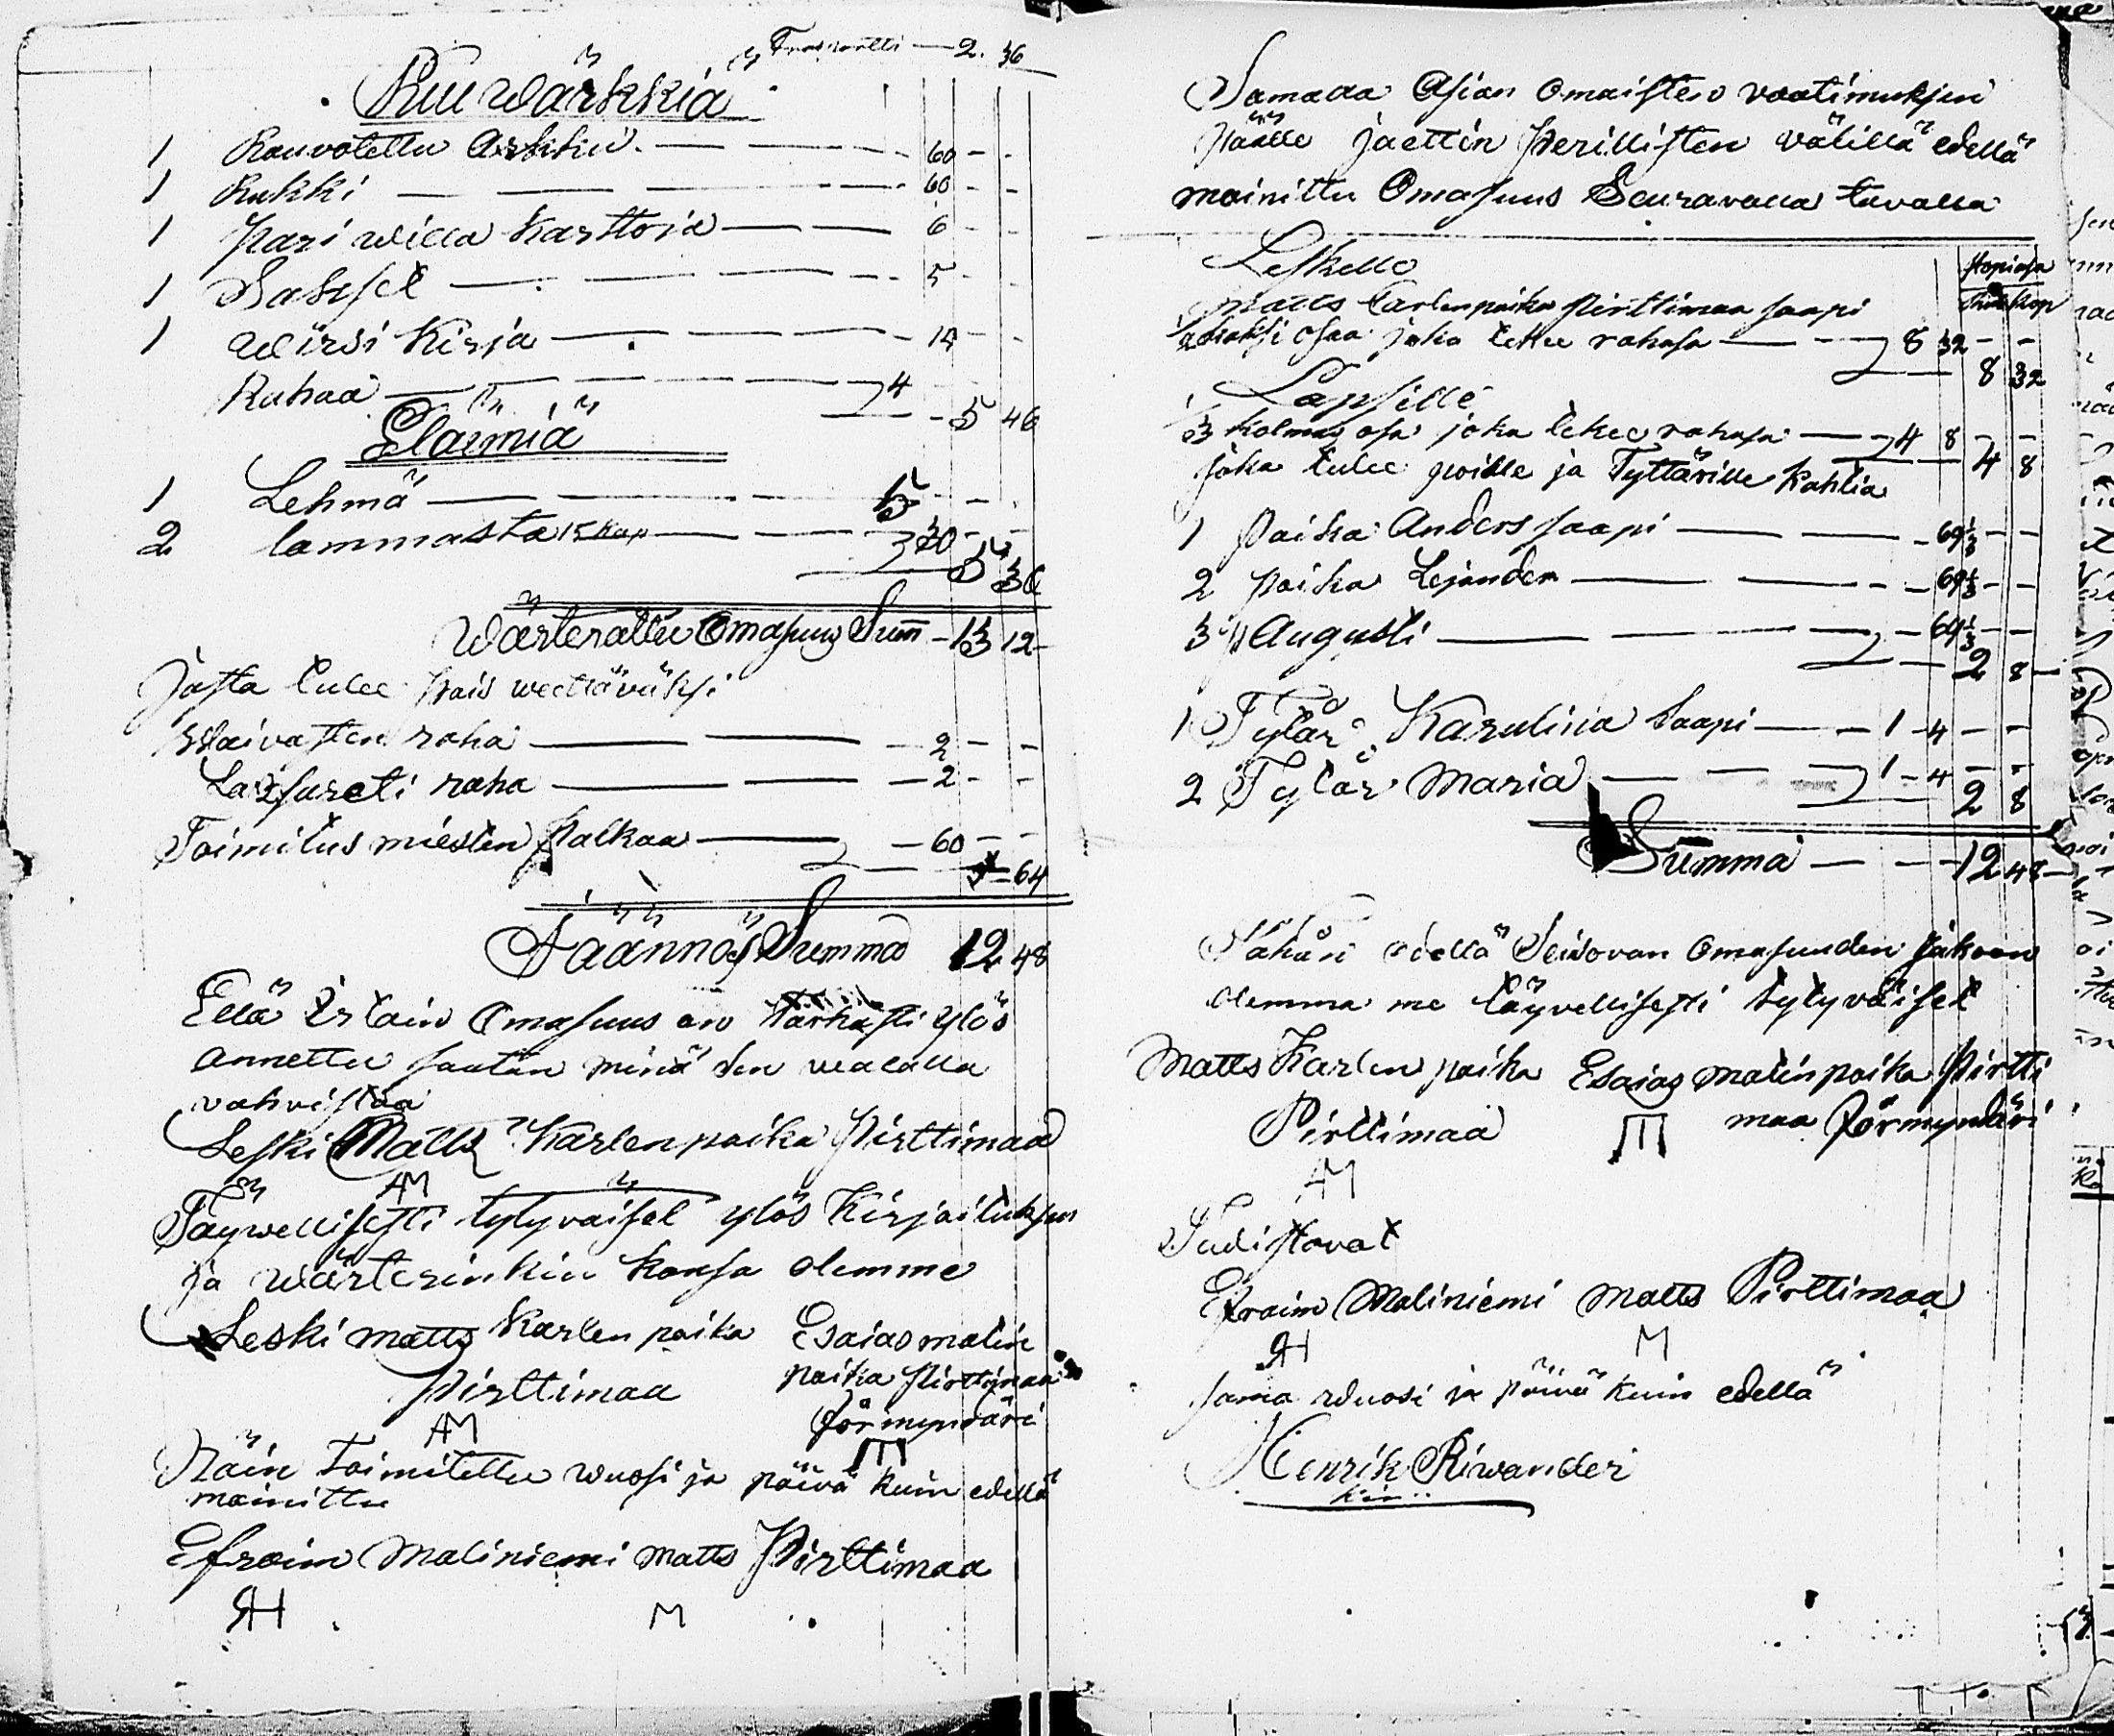 Transportti — 2. 36
Puu wärkkiä
1 Rauvotettu Arkku — 60
1 Rukki — 60
1 Pari willa karttoja — 6
1 — 5
1 wirsi Kirja — 14
Rahaa — 4
5 46
Eläimiä
1 Lehmä — 5
2 lammasta 15 kop — 30
5 30
Wärterattu Omasuus Sum̄ - 13 12
Josta tulee pois weettäväksi
Waivasten raha — 2
Latsareti raha — 2
Toimitus miesten Palkaa — 60
- 64
Täännös Summa 12 48
Että Omasuus on tarkasti ylös
annettu saatan minä sen walalla
vahvistaa
Leski Matts Karlen poika Pirttimaa
AM
Täywellisesti tytyväiset ylös Kirjoituksen
ja wärterinkin kansa olemme
Leski Matts Karlen poika Esaias Matin
Pirttimaa poika Pirttimaa
AM förmyndäri
Näin Toimitettu wuosi ja päivä kuin edellä
mainittu
Efraim Maliniemi Matts Pirttimaa
M
Samaa Asian Omaisten vaatimuksen
Päälle jaettin Perillisten välillä edellä
mainittu Omasuus Seuravalla tavalla
Leskelle
Hopiasa
Kop
Matts Karlenpoika Pirttimaa saapi
osaa joka tekee rahasa — 8 32
8 32
Lapsille
1/3 kolmas osa joka tekee rahasa — 4 8
joka tulee poille ja Tyttärille kahtia 4 8
1 Poika Anders saapi — 69 1/3
2 poika Lejander — 69 1/3
3 " Augusti — 69 1/3
2 8
1 Tytär Karulina saapi — 1 - 4
2 Tytär Maria — 1 - 4
2 8
Summa — 12 48
Tähän edellä Seisovan Omasuuden jakoon
olemma me täyvellisesti tytyväiset
Matts Karlen poika Esaias Matin poika Pirtti
Pirttimaa maa förmynderi
AM
Tudistavat
Efraim Maliniemi Matts Pirttimaa
M
sama wuosi ja päivä kuin edellä
Henrik Riwander